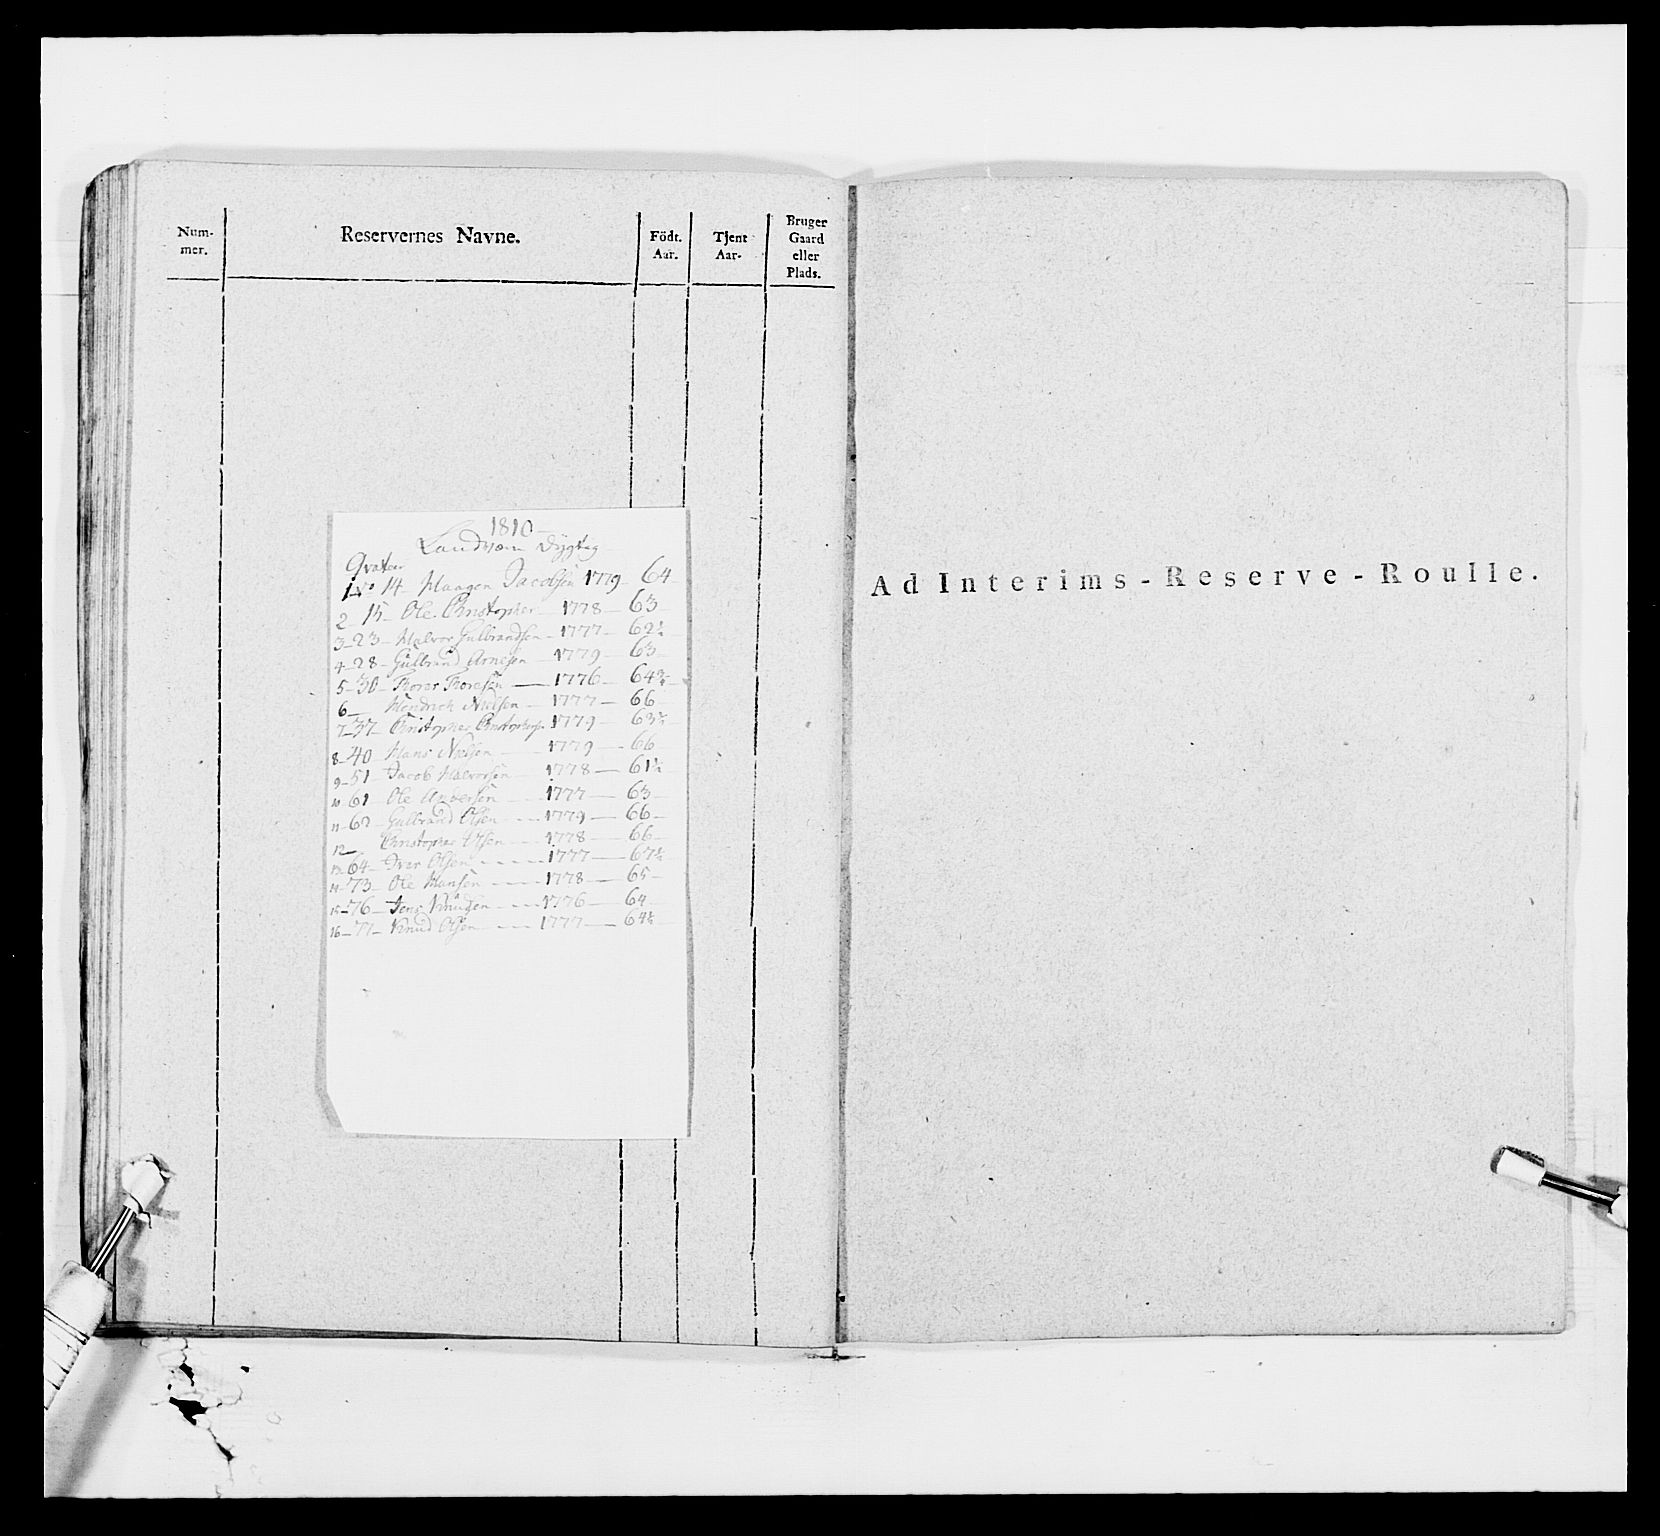 Num-
mer.
Reservernes Navne.
Födt.
Aar.
Tjent
Aar.
Bruger
Gaard
eller
Plads.
1810
Landværn Dygtig
1 No 14 Haagen Jacobsen 1779 - 64
2 15 - Ole Christopher 1778 - 63
3 - 23 - Halvor Gulbrandsen - 1777 - 62½
4 - 28 - Gulbrand Arnesen 1779 - 63
5 - 30 - Thorer Thoresen - 1776 - 64¾
6 - Hendrich Nielsen - 1777 - 66
7 - 37 - Christopher Christophersn 1779 - 63½
8 - 40 Hans Nielsen - 1779 - 66
9 - 51 Jacob Halvorsen 1778 - 61½
10 - 61 Ole Andersen - 1777 - 63
11 - 62 - Gulbrand Olsen - 1779 - 66
12 - Christopher Olsen - 1778 - 66
13 - 64 - Iver Olsen - 1777 - 67½
14 - 73 - Ole Hansen - 1778 - 65
15 - 76 - Jens Knudsen - 1776 - 64
16 - 77 - Knud Olsen - 1777 - 64½
Ad Interims-Reserve-Roulle.